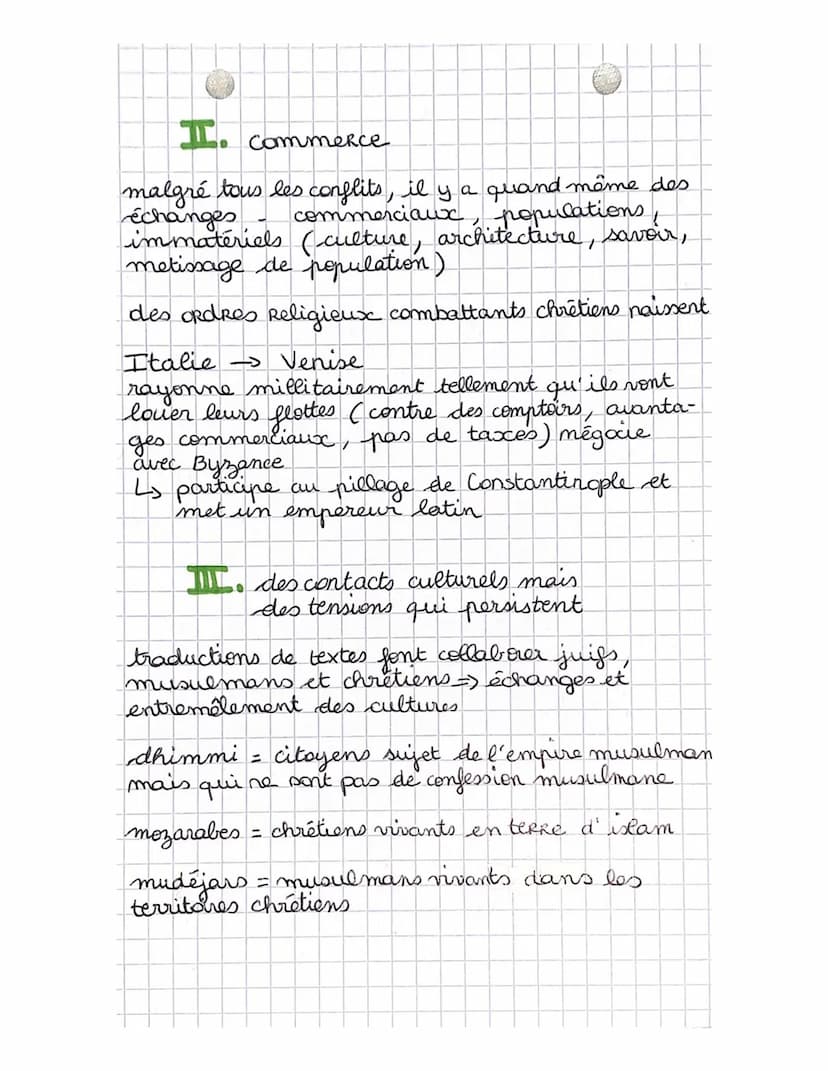 II. commerce
malgré tous les conflits, il y a quand même des
échanges - commerciaux, populations,
immatériels (culture, architecture, savoir,
metissage de population)
des ordres religieux combattants chrétiens naissent
Italie → Venise
rayonne millitairement tellement qu'ils vont
louer leurs flottes (contre des comptoirs, avanta-
ges commerciaux, pas de taxes) mégocie
avec Byzance
↳ participe au pillage de Constantinople et
met un empereur latin
III. des contacts culturels mais
des tensions qui persistent
traductions de textes font collaborer juifs,
musulmans et chrétiens ⇒ échanges et
entremêlement des cultures
dhimmi = citoyens sujet de l'empire musulman
mais qui ne sont pas de confession musulmane
mozarabes = chrétiens vivants en terre d'islam
mudéjars = musulmans vivants dans les
territoires chrétiens